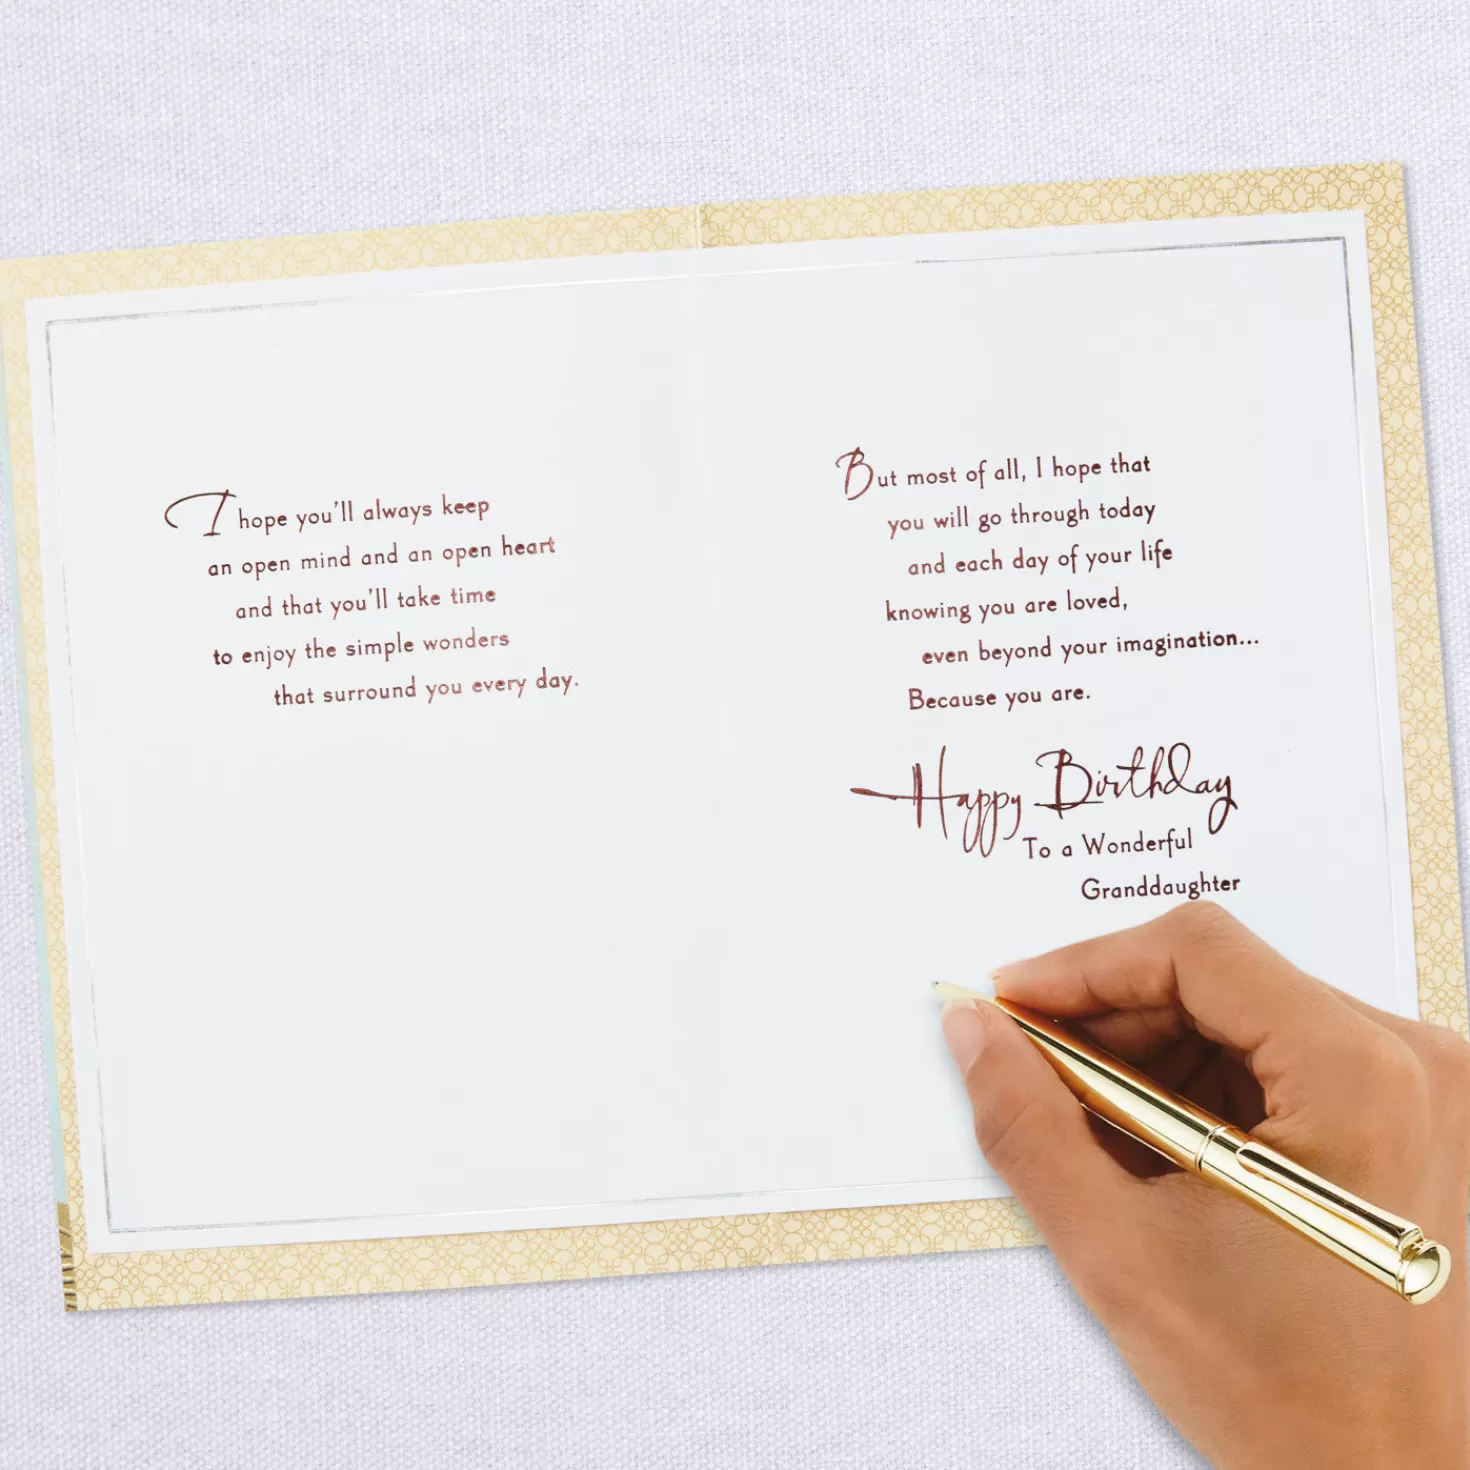 I hope you'll always keep
an open mind and an open heart
and that you'll take time
to enjoy the simple wonders
that surround you every day.
But most of all, I hope that
you will go through today
and each day of your life
knowing you are loved,
even beyond your imagination...
Because you are.
Happy Birthday
To a Wonderful
Granddaughter